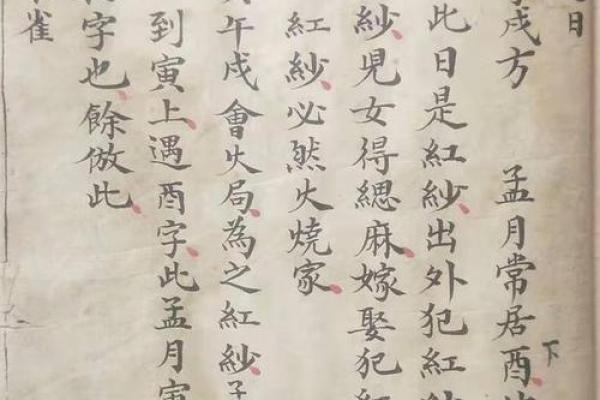 日
戌方 孟月常居酉
下
此日是紅紗出外犯紅紗
紗兒女得緦麻嫁娶犯紅
紅紗必然火燒家
午戌會火局為之紅紗子
到寅上遇酉字此孟月寅
字也餘倣此
雀